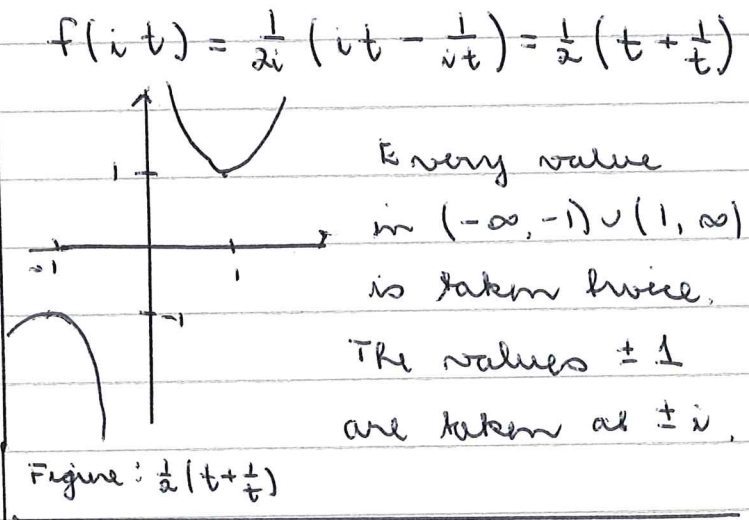 f(it) = 1/2i (it - 1/it) = 1/2 (t + 1/t)
1
-1
1
-1
Every value
in (-∞, -1) ∪ (1, ∞)
is taken twice.
The values ± 1
are taken at ± i.
Figure: 1/2 (t + 1/t)